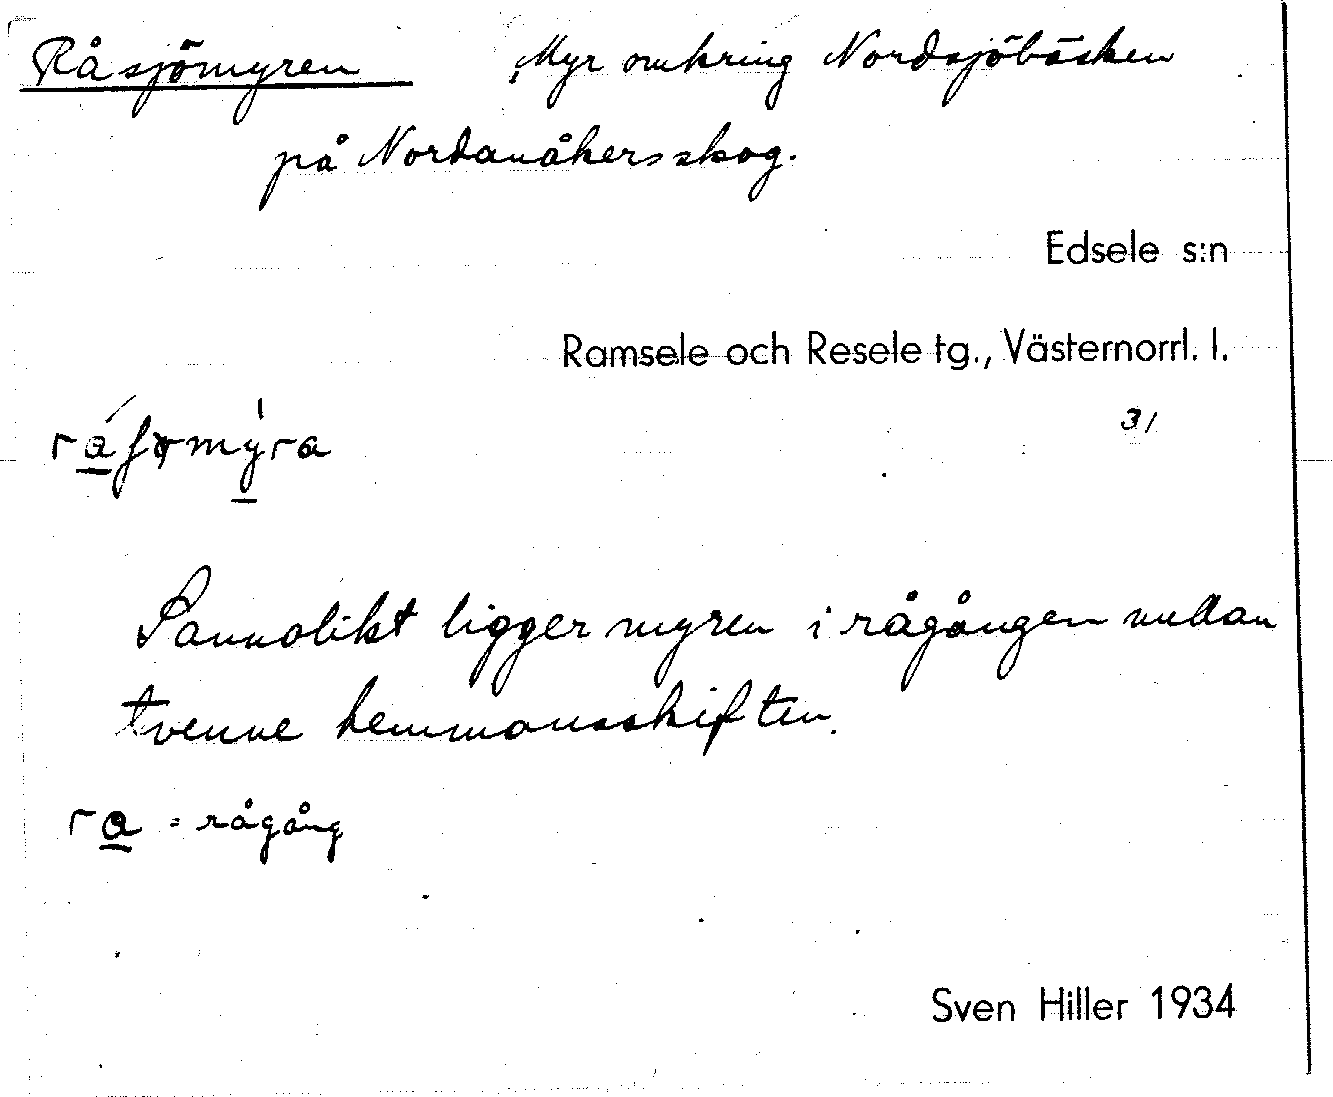 Råsjömyren Myr omkring Nordsjöbäcken
på Nordanåkersskog.
Edsele s:n
Ramsele och Resele tg., Västernorrl. l.
31
Sannolikt ligger myren i rågången mellan
tvenne hemmansskiften.
ra = rågång
Sven Hiller 1934